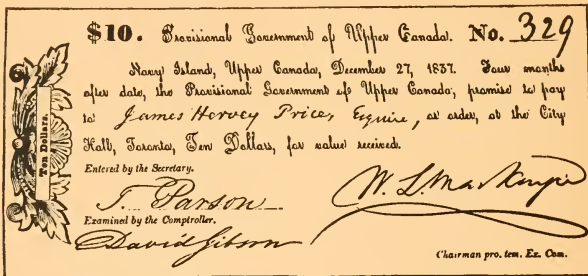 $10. Provisional Government of Upper Canada. No. 329
Navy Island, Upper Canada, December 27, 1837. Four months
after date, the Provisional Government of Upper Canada, promise to pay
to James Hervey Price, Esquire, or order, at the City
Hall, Toronto, Ten Dollars, for value received.
Ten Dollars.
Entered by the Secretary.
T. Parson
W. L. MacKenzie
Examined by the Comptroller.
David Gibson
Chairman pro. tem. Ex. Com.